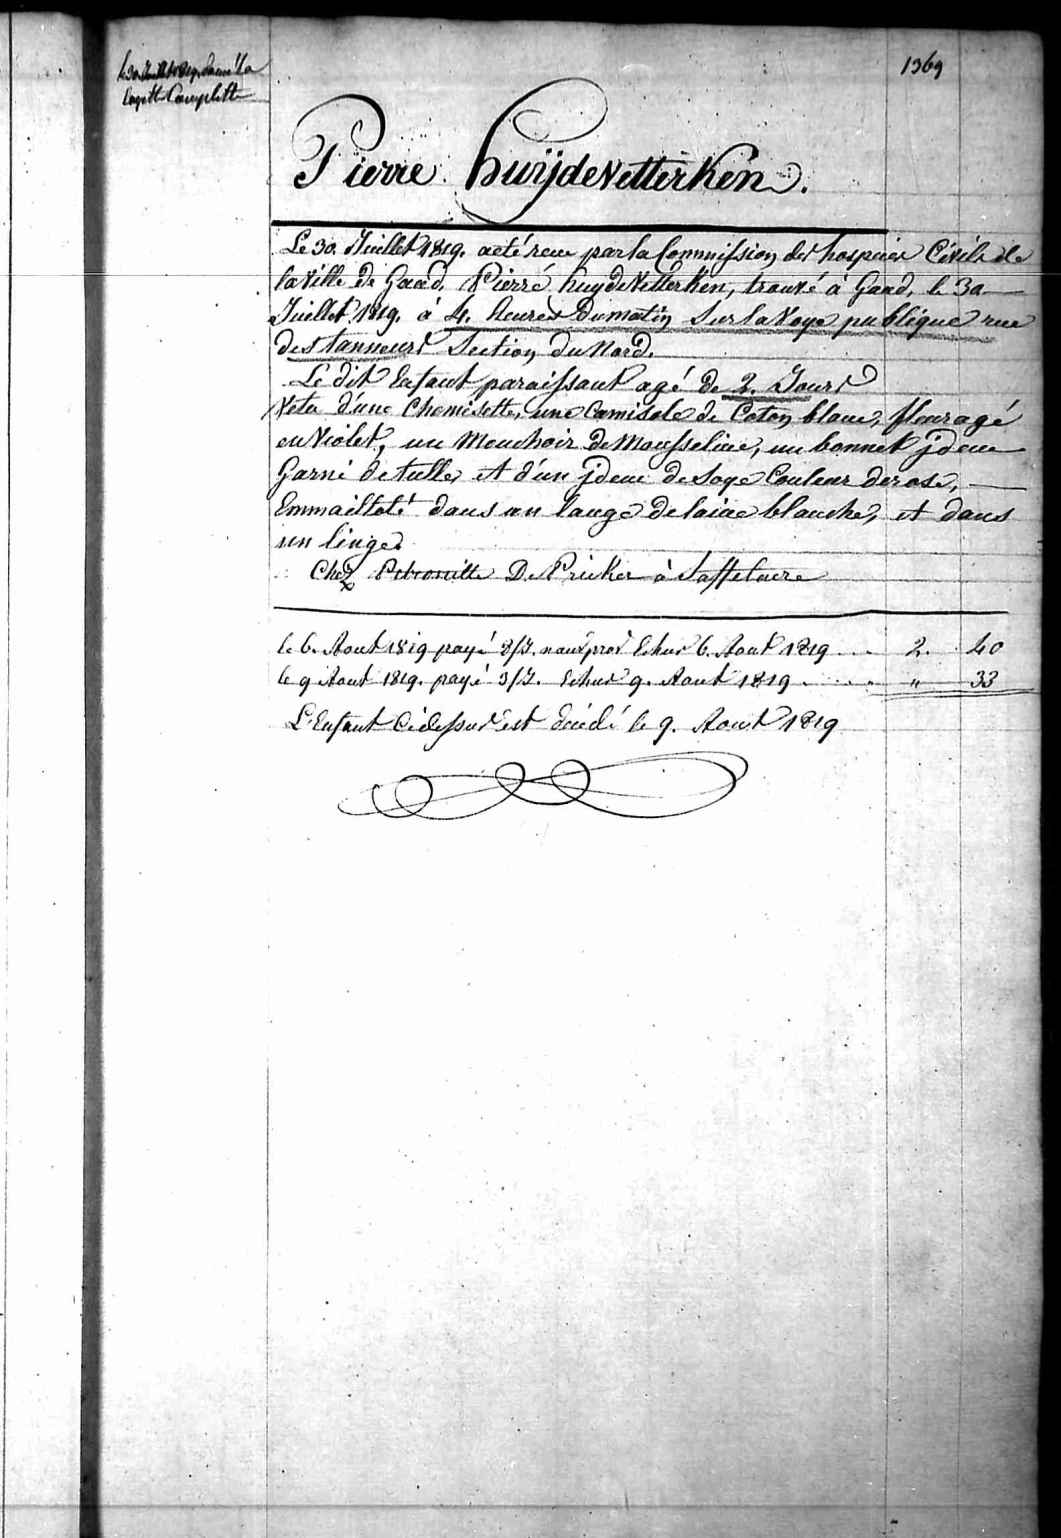 1369
le 30 Juillet 1819. donné la
layette Complette
Pierre huijdevetterken.
Le 30. Juillet 1819. a eté reçu par la Commission des hospices Civils de
la Ville de Gand, Pierre huydevetterken, trouvé à Gand, le 30
Juillet 1819. à 4. heures Du matin Sur la Voye publique rue
des tanneurs Section du Nord.
Le dit Enfant paraissant agé de 2. Jours
Vetu d'une Chemisette, une Camisole de Coton blanc, fleuragé
en Violet, un Mouchoir De Mousseline, un bonnet jdem
Garni de tulle, et d'un jdem de Soye Couleur de rose,
Emmailloté dans un lange de laine blanche, et dans
un linge.
Chez Petronille De Pricker à Saffelaere
le 6. Aout 1819 payé 8/J. nour prov Echus 6. Aout 1819 .... 2. 40
le 9 Aout 1819. payé 3/J. Echus 9. Aout 1819 ...... " 33
L'Enfant Cidessus est décédé le 9. Aout 1819